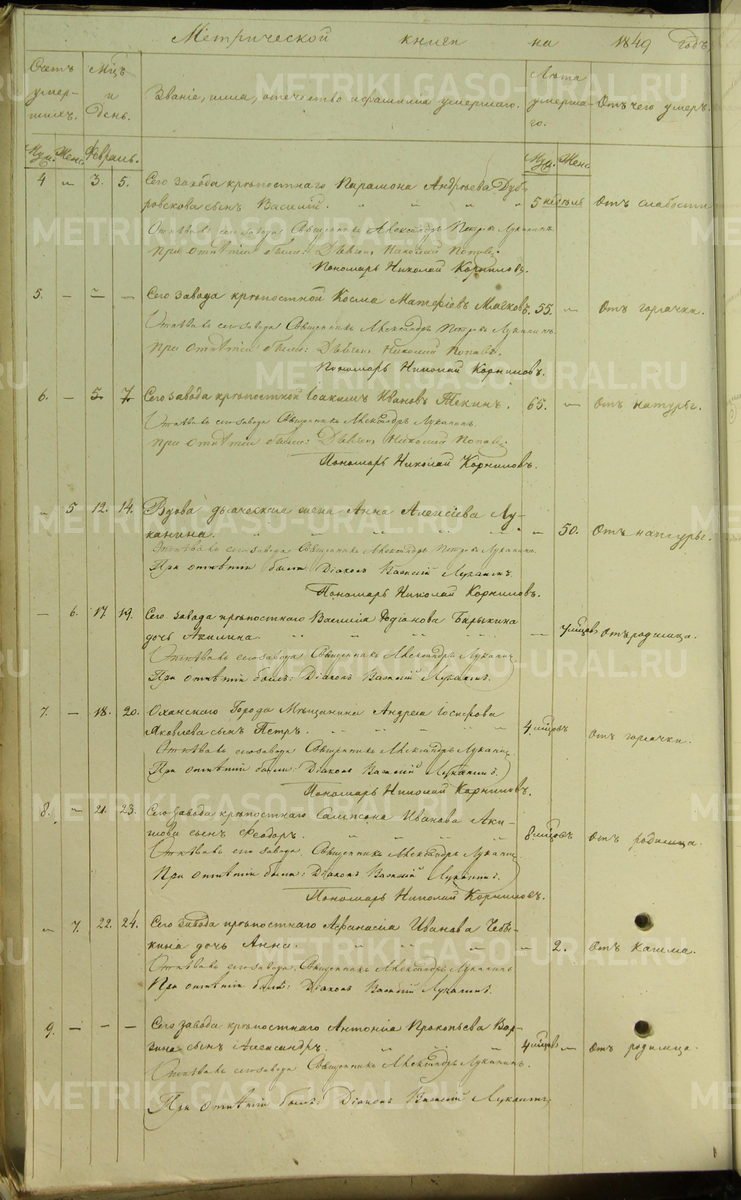 Метрической книги на 1849 годъ
Счетъ умер-шихъ. Мцъ и День. Званіе, имя, отечество и фамилія умершаго. Лѣта умерша-го. Отъ чего умеръ.
Муж. Жен. Февраль. Муж. Жен.
4 „ 3. 5. Сего завода крѣпостнаго Парамона Андреева Дуб-
ровскова сынъ Василій. 5 недѣль Отъ слабости
Отпѣвалъ сего завода Священникъ Александръ Петровъ Луканинъ.
При отпѣтіи были: Дьячокъ Николай Поповъ.
Пономарь Николай Корниловъ.
5. — „ — Сего завода крѣпостной Косма 55. — Отъ горячки.
Отпѣвалъ сего завода Священникъ Александръ Петровъ Луканинъ.
При отпѣтіи были: Дьячокъ Николай Поповъ.
Пономарь Николай Корниловъ.
6. — 5 7. Сего завода крѣпостной Іоакимъ Ивановъ Текинъ. 65. — Отъ натуры.
Отпѣвалъ сего завода Священникъ Александръ Луканинъ.
При отпѣтіи были: Дьячокъ Николай Поповъ.
Пономарь Николай Корниловъ.
„ 5 12. 14. Вдова дьяческая жена Анна Алексіева Лу-
канина. — 50. Отъ натуры.
Отпѣвалъ сего завода Священникъ Александръ Петровъ Луканинъ.
При отпѣтіи были Діаконъ Василій Луканинъ.
Пономарь Николай Корниловъ.
— 6. 17. 19. Сего завода крѣпостнаго Василія Родіонова Барыкина
дочь Акилина. — 7 мцовъ Отъ родимца.
Отпѣвалъ сего завода Священникъ Александръ Луканинъ
При отпѣтіи былъ: Діаконъ Василій Луканинъ.
7. — 18. 20. Оханскаго Города Мѣщанина Андрея Іосифова
Яковлева сынъ Петръ. 4 мцовъ Отъ горячки.
Отпѣвалъ сего завода Священникъ Александръ Луканинъ
При отпѣтіи были: Діаконъ Василій Луканинъ.
Пономарь Николай Корниловъ.
8. — 21. 23. Сего завода крѣпостнаго Сампсона Иванова
сынъ Феодоръ. 8 мцовъ Отъ родимца.
Отпѣвалъ сего завода Священникъ Александръ Луканинъ
При отпѣтіи были: Діаконъ Василій Луканинъ.
Пономарь Николай Корниловъ.
„ 7. 22. 24. Сего завода крѣпостнаго Афанасія Иванова
дочь Анна. „ 2. Отъ кашля.
Отпѣвалъ сего завода Священникъ Александръ Луканинъ
При отпѣтіи былъ: Діаконъ Василій Луканинъ.
9. — — — Сего завода крѣпостнаго Антонія Прокопьева
сынъ Александръ. 4 мцовъ — Отъ родимца.
Отпѣвалъ сего завода Священникъ Александръ Луканинъ.
При отпѣтіи былъ: Діаконъ Василій Луканинъ.
METRIKI.GASO-URAL.RU